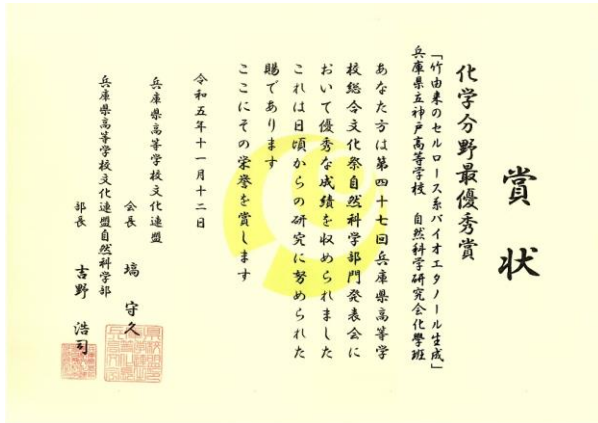 賞状
化学分野最優秀賞
「竹由来のセルロース系バイオエタノール生成」
兵庫県立神戸高等学校　自然科学研究会化學班
あなた方は第四十七回兵庫県高等学
校総合文化祭自然科学部門発表会に
おいて優秀な成績を収められました
これは日頃からの研究に努められた
賜であります
ここにその栄誉を賞します
令和五年十一月十二日
兵庫県高等学校文化連盟
会長　塙　守久
兵庫県高等学校文化連盟自然科学部
部長　吉野　浩司